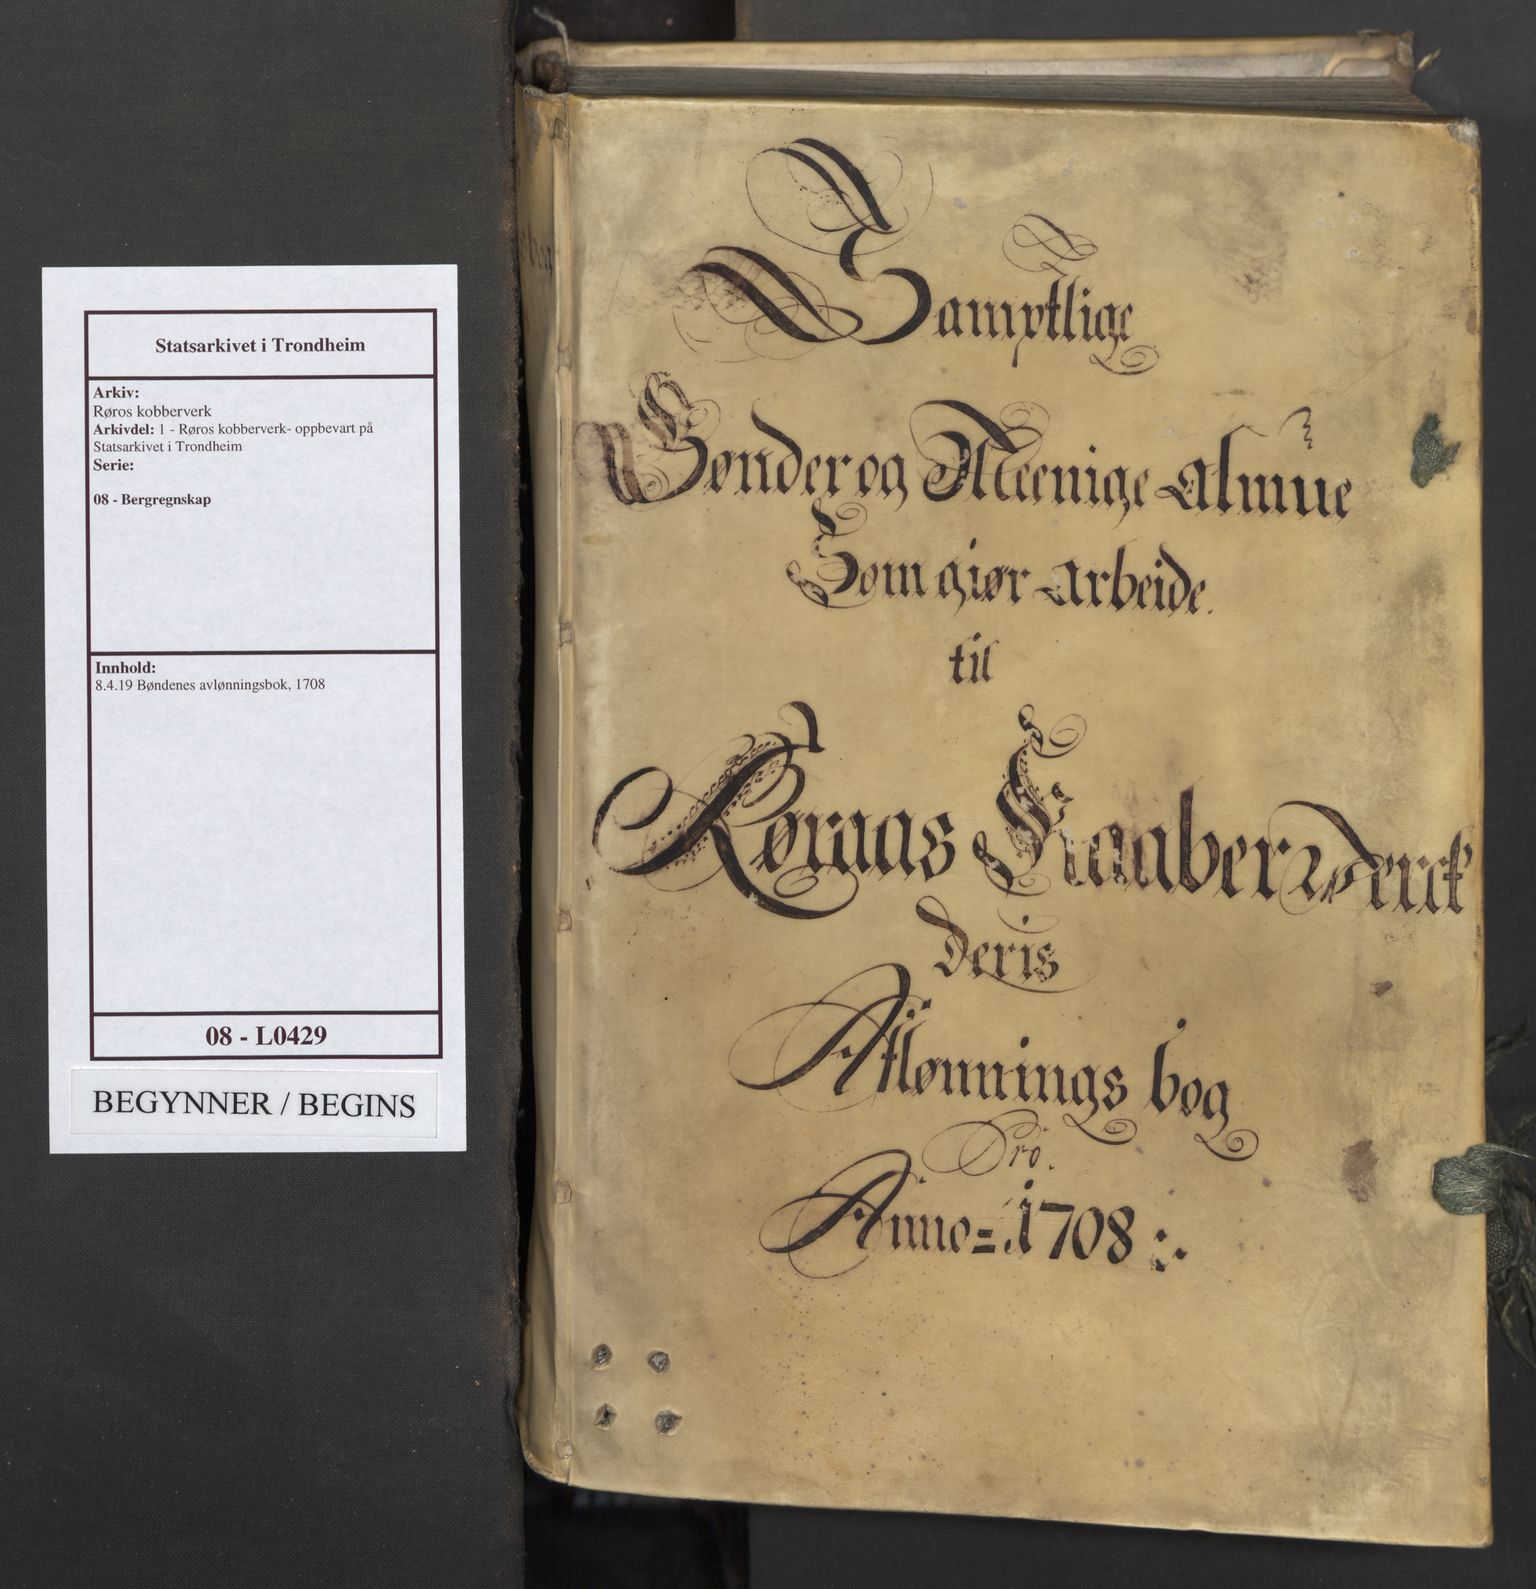 Statsarkivet i Trondheim
Arkiv:
Røros kobberverk
Arkivdel: 1 - Røros kobberverk- oppbevart på
Statsarkivet i Trondheim
Serie:
08 - Bergregnskap
Innhold:
8.4.19 Bøndenes avlønningsbok, 1708
08 - L0429
BEGYNNER / BEGINS
Samptlige
Bønder og Meenige Almue
Som giør Arbeide.
til
Røraas Kaaber Werck
deris
Aflønnings bog
Pro.
Anno = 1708